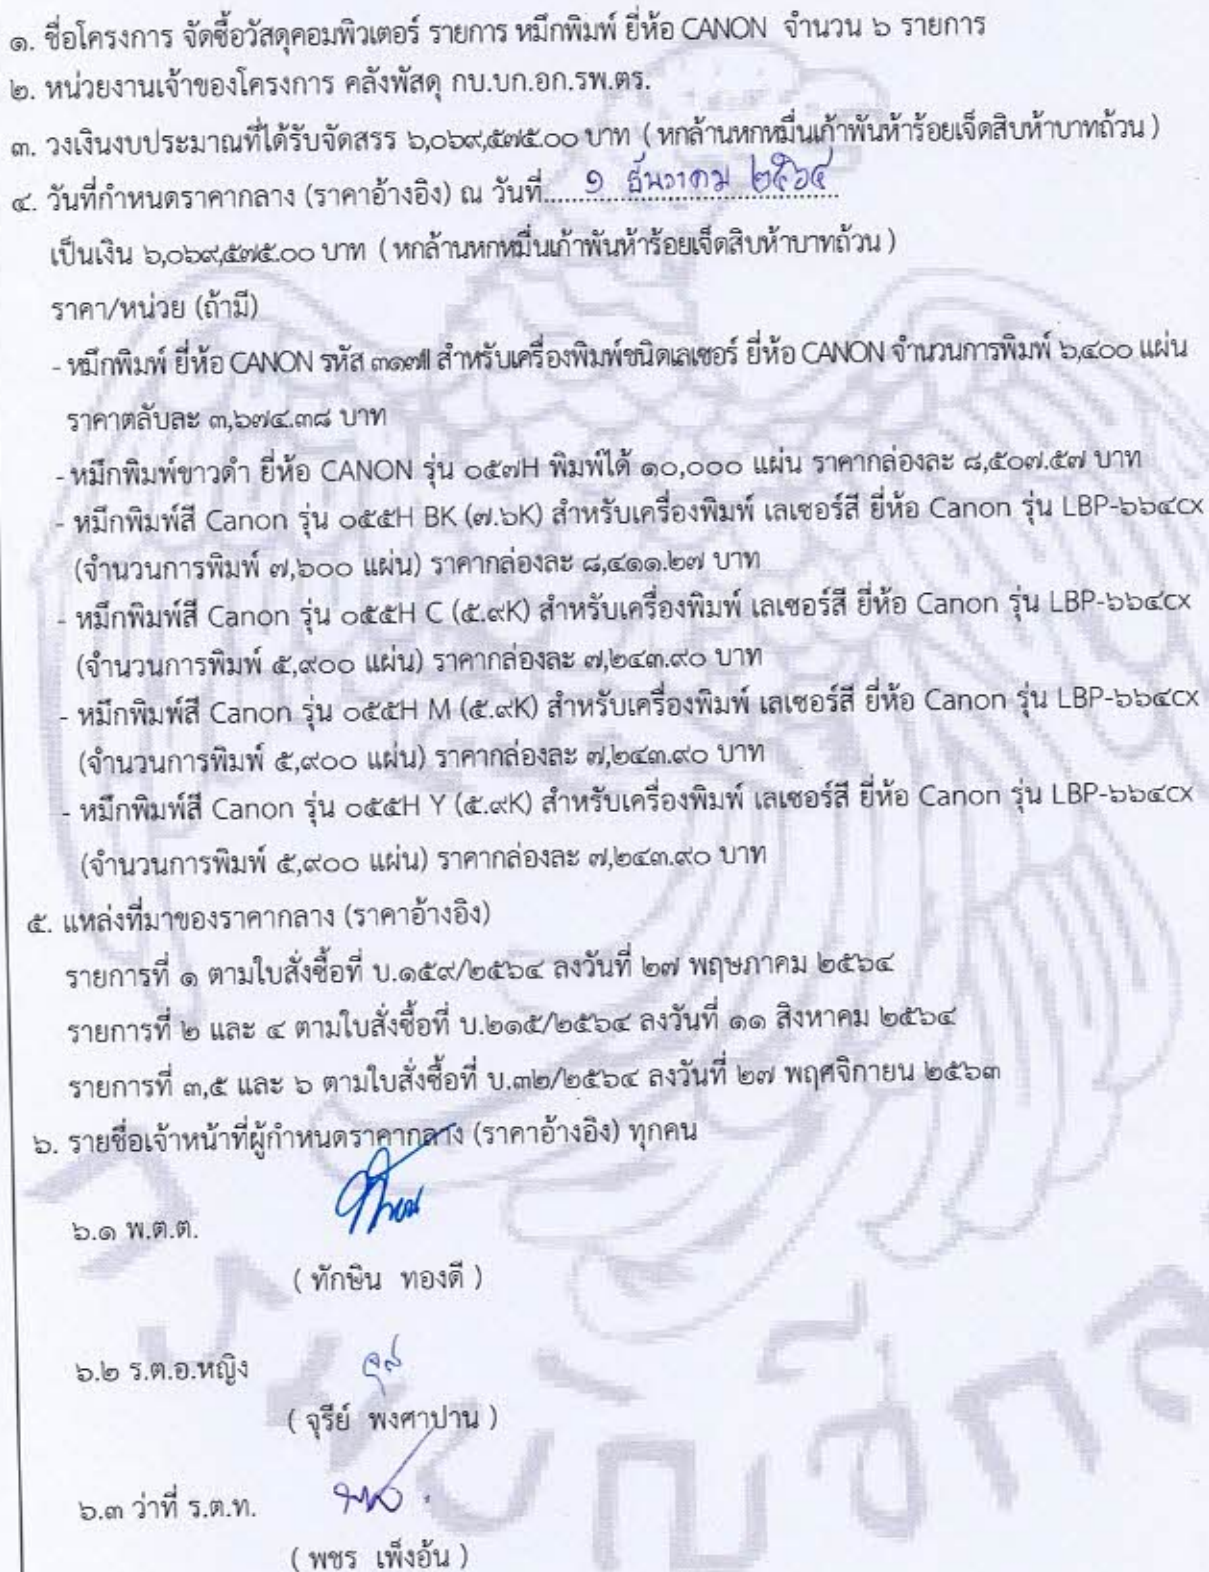 ๑. ชื่อโครงการ จัดซื้อวัสดุคอมพิวเตอร์ รายการ หมึกพิมพ์ ยี่ห้อ CANON จำนวน ๖ รายการ
๒. หน่วยงานเจ้าของโครงการ คลังพัสดุ กบ.บก.อก.รพ.ตร.
๓. วงเงินงบประมาณที่ได้รับจัดสรร ๖,๐๖๙,๕๗๕.๐๐ บาท ( หกล้านหกหมื่นเก้าพันห้าร้อยเจ็ดสิบห้าบาทถ้วน )
๔. วันที่กำหนดราคากลาง (ราคาอ้างอิง) ณ วันที่.....๑ ธันวาคม ๒๕๖๔.....
เป็นเงิน ๖,๐๖๙,๕๗๕.๐๐ บาท ( หกล้านหกหมื่นเก้าพันห้าร้อยเจ็ดสิบห้าบาทถ้วน )
ราคา/หน่วย (ถ้ามี)
- หมึกพิมพ์ ยี่ห้อ CANON รหัส ๓๑๗II สำหรับเครื่องพิมพ์ชนิดเลเซอร์ ยี่ห้อ CANON จำนวนการพิมพ์ ๖,๔๐๐ แผ่น
ราคาตลับละ ๓,๖๗๔.๓๘ บาท
- หมึกพิมพ์ขาวดำ ยี่ห้อ CANON รุ่น ๐๕๗H พิมพ์ได้ ๑๐,๐๐๐ แผ่น ราคากล่องละ ๘,๕๐๗.๕๗ บาท
- หมึกพิมพ์สี Canon รุ่น ๐๕๕H BK (๗.๖K) สำหรับเครื่องพิมพ์ เลเซอร์สี ยี่ห้อ Canon รุ่น LBP-๖๖๔CX
(จำนวนการพิมพ์ ๗,๖๐๐ แผ่น) ราคากล่องละ ๘,๔๑๑.๒๗ บาท
- หมึกพิมพ์สี Canon รุ่น ๐๕๕H C (๕.๙K) สำหรับเครื่องพิมพ์ เลเซอร์สี ยี่ห้อ Canon รุ่น LBP-๖๖๔CX
(จำนวนการพิมพ์ ๕,๙๐๐ แผ่น) ราคากล่องละ ๗,๒๔๓.๙๐ บาท
- หมึกพิมพ์สี Canon รุ่น ๐๕๕H M (๕.๙K) สำหรับเครื่องพิมพ์ เลเซอร์สี ยี่ห้อ Canon รุ่น LBP-๖๖๔CX
(จำนวนการพิมพ์ ๕,๙๐๐ แผ่น) ราคากล่องละ ๗,๒๔๓.๙๐ บาท
- หมึกพิมพ์สี Canon รุ่น ๐๕๕H Y (๕.๙K) สำหรับเครื่องพิมพ์ เลเซอร์สี ยี่ห้อ Canon รุ่น LBP-๖๖๔CX
(จำนวนการพิมพ์ ๕,๙๐๐ แผ่น) ราคากล่องละ ๗,๒๔๓.๙๐ บาท
๕. แหล่งที่มาของราคากลาง (ราคาอ้างอิง)
รายการที่ ๑ ตามใบสั่งซื้อที่ บ.๑๕๙/๒๕๖๔ ลงวันที่ ๒๗ พฤษภาคม ๒๕๖๔
รายการที่ ๒ และ ๔ ตามใบสั่งซื้อที่ บ.๒๑๕/๒๕๖๔ ลงวันที่ ๑๑ สิงหาคม ๒๕๖๔
รายการที่ ๓,๕ และ ๖ ตามใบสั่งซื้อที่ บ.๓๒/๒๕๖๔ ลงวันที่ ๒๗ พฤศจิกายน ๒๕๖๓
๖. รายชื่อเจ้าหน้าที่ผู้กำหนดราคากลาง (ราคาอ้างอิง) ทุกคน
๖.๑ พ.ต.ต.
( ทักษิน ทองดี )
๖.๒ ร.ต.อ.หญิง
( จุรีย์ พงศาปาน )
๖.๓ ว่าที่ ร.ต.ท.
( พชร เพ็งอ้น )